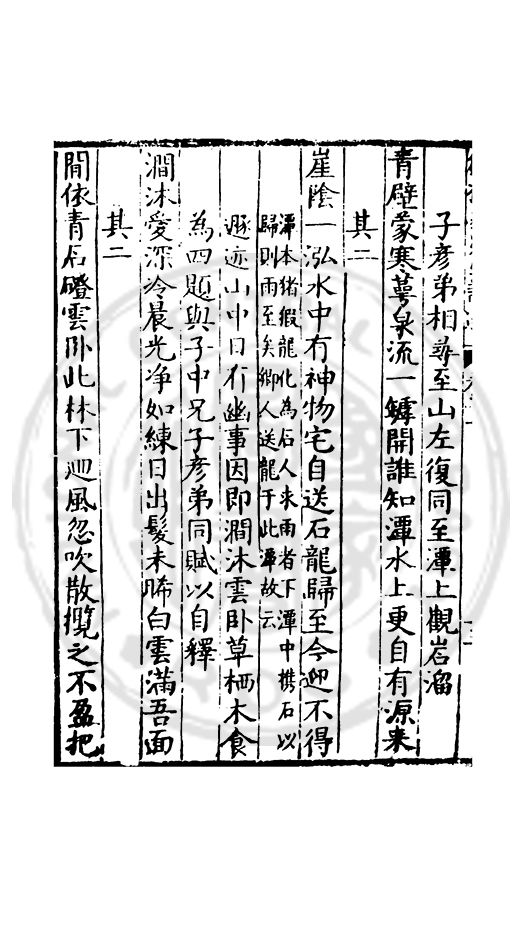 子彥弟相尋至山左復同至潭上觀岩溜
青壁蒙寒蕚泉流一罅開誰知潭水上更自有源来
其二
崖陰一泓水中有神物宅自送石龍歸至今迎不得
潭本绪假龍化為石人来雨者下潭中携石以
歸則雨至矣鄉人送龍于此潭故云
遯迹山中日有幽事因即澗沐雲卧草栖木食
為四題與子中兄子彥弟同賦以自釋
澗沐愛深冷晨光净如練日出髮未晞白雲滿吾面
其二
間依青石磴雲卧此林下迴風忽吹散攬之不盈把